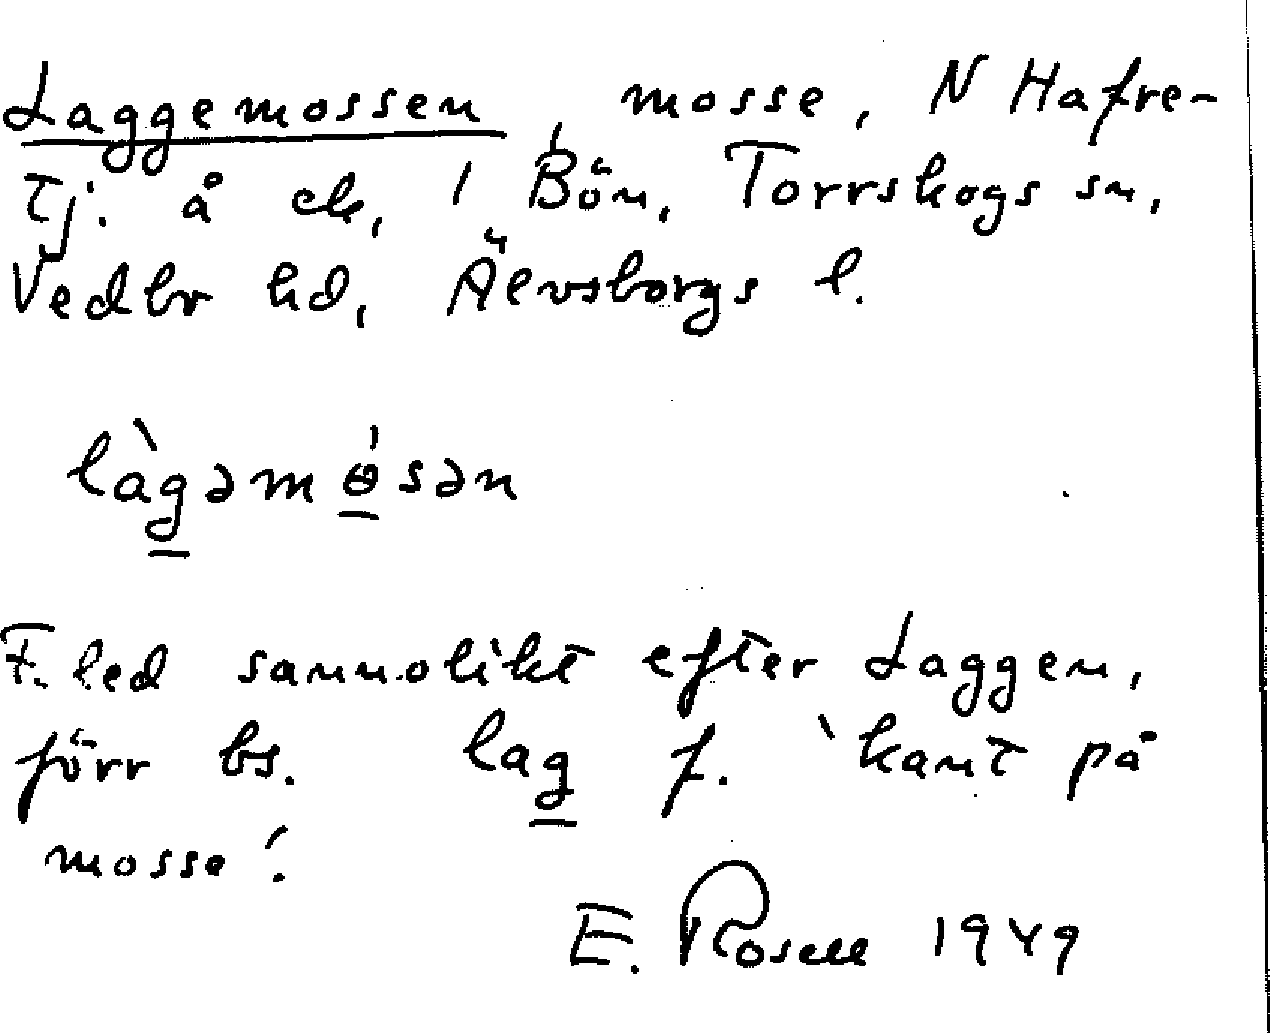 Laggemossen, mosse, N Hafre-
tj. å ek, i Bön, Torrskogs sn,
Vedbr hd, Älvsborgs l.
làg̲əmɵ̲́sən
F. led sannolikt efter Laggen,
förr bs. lag̲ f. `kant på
mosse´.
E. Rosell 1949